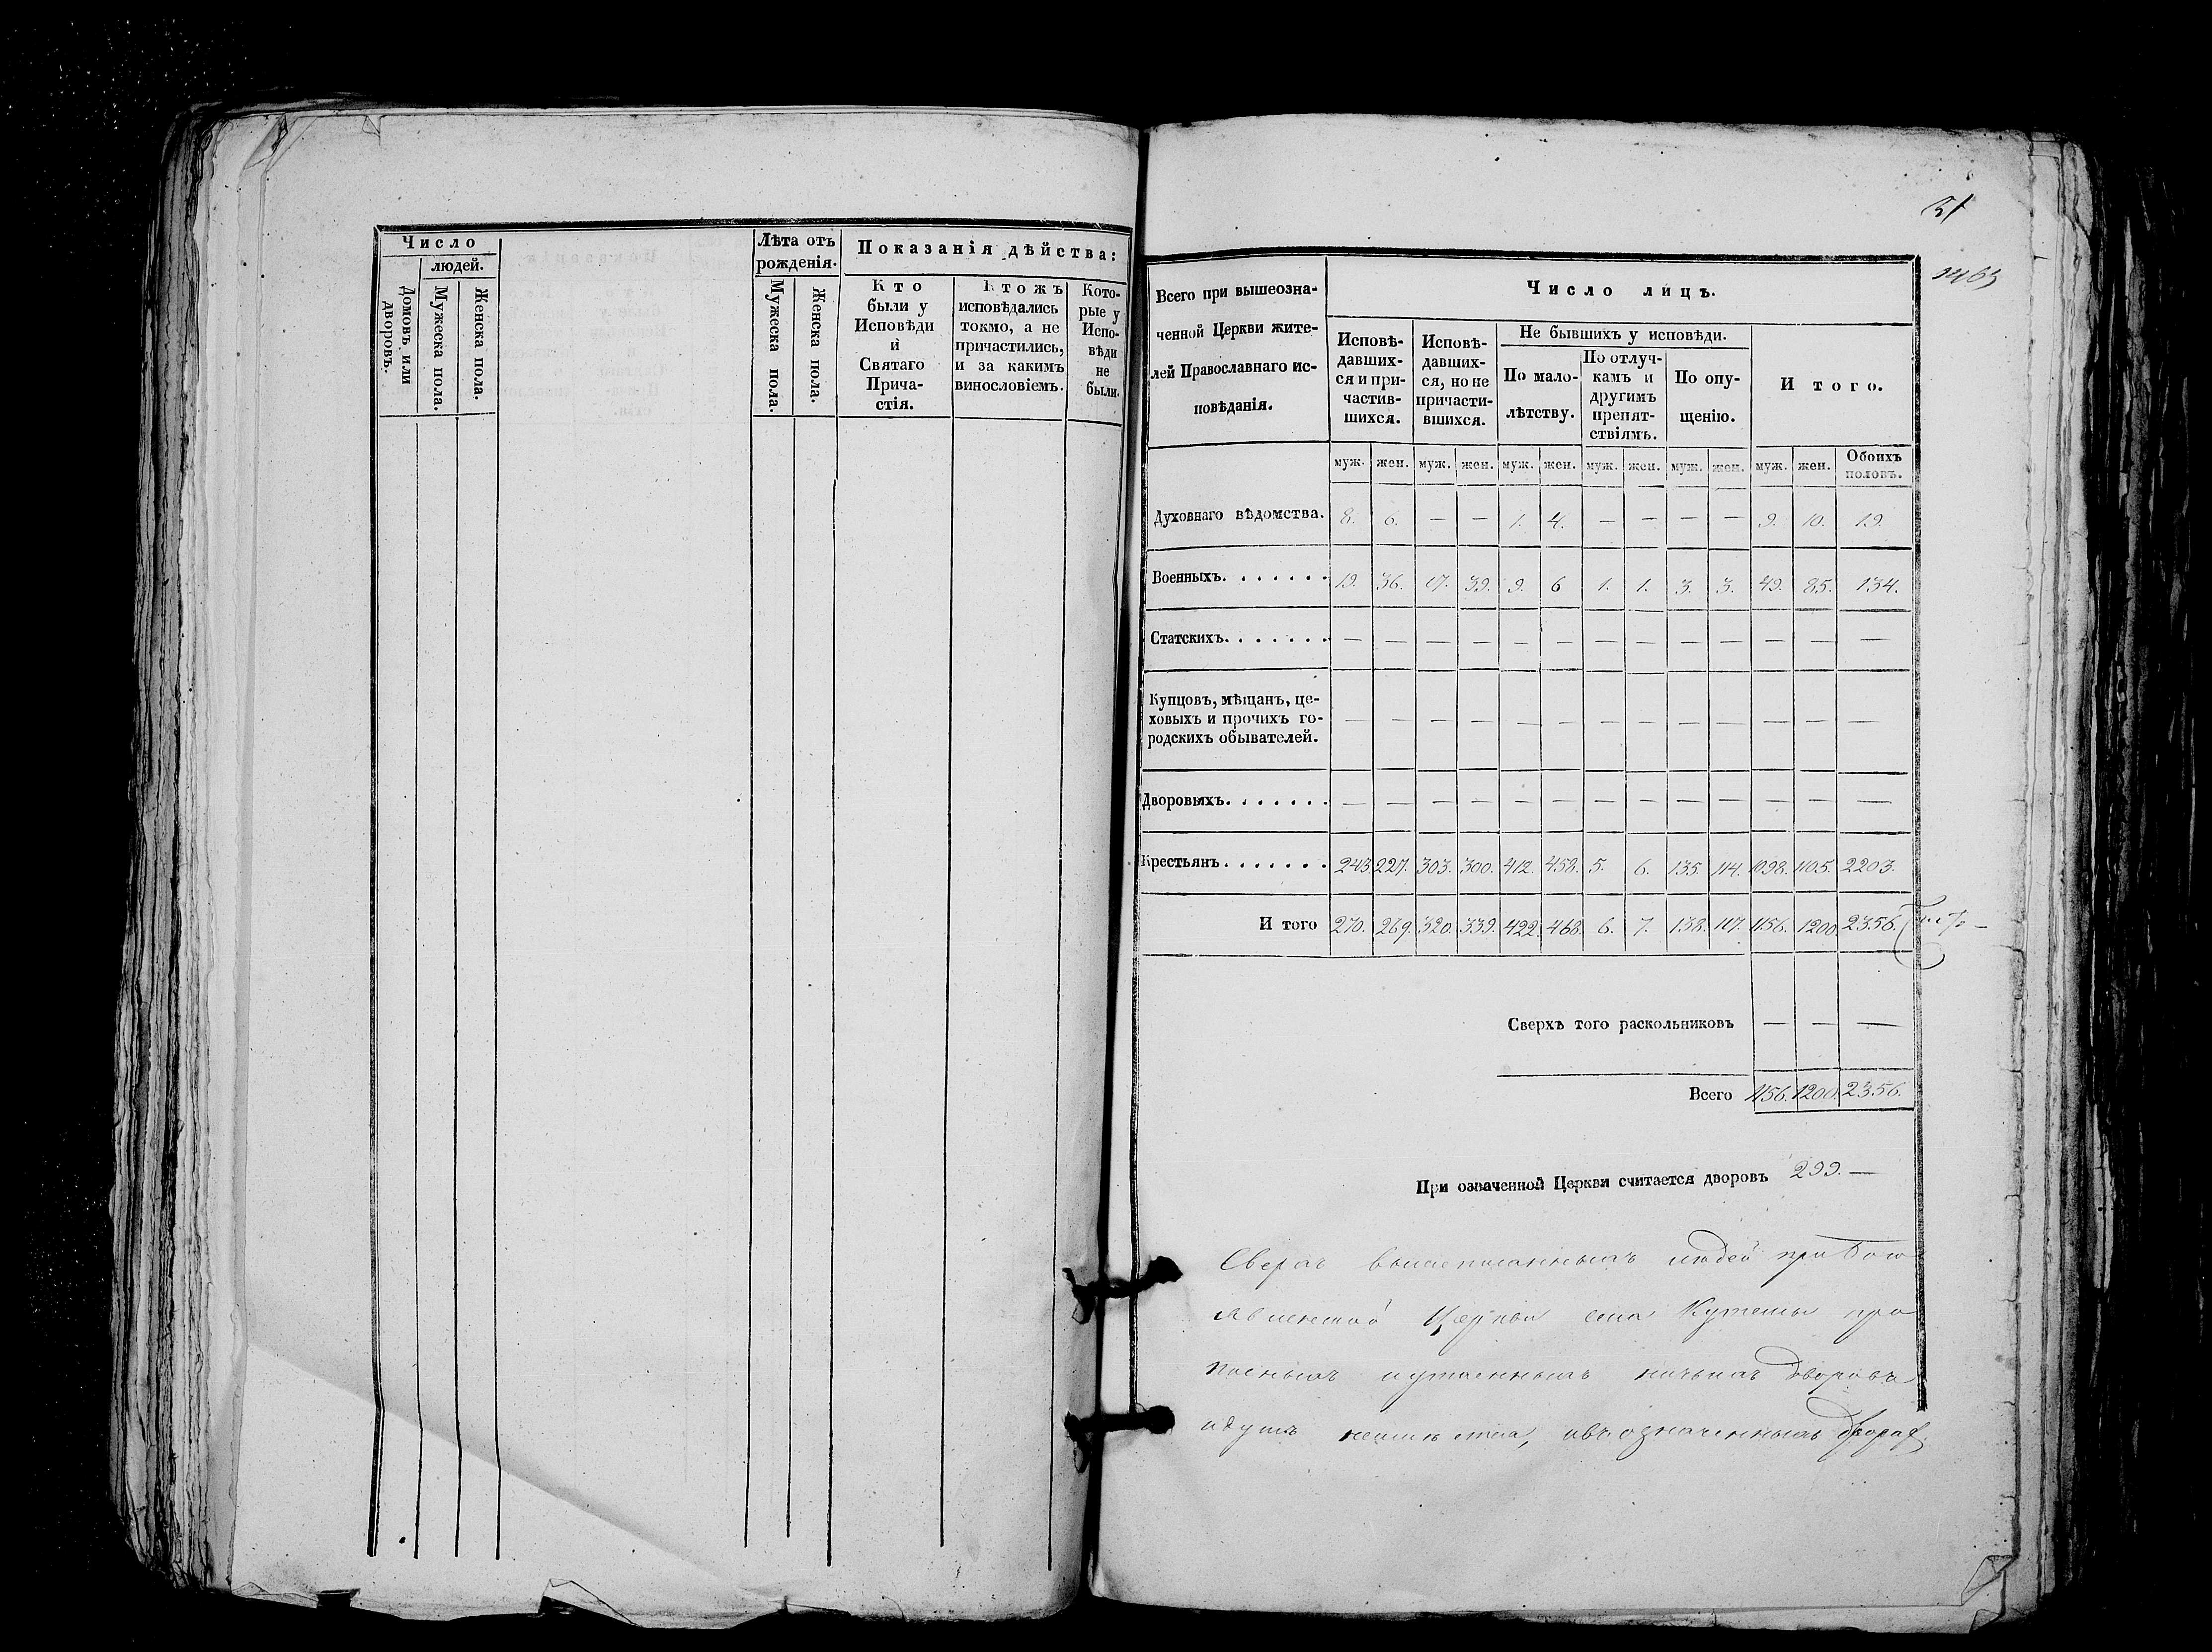 Число
людей.
Домовъ или дворовъ.
Мужеска пола.
Женска пола.
Лѣта отъ
рожденія.
Мужеска пола.
Женска пола.
Показанія дѣйства:
Кто
были у
Исповѣди
и
Святаго
Прича-
стія.
Ктожъ
исповѣдались
токмо, а не
причастились,
и за какимъ
винословіемъ.
Кото-
рые у
Испо-
вѣди
не
были.
51
Всего при вышеозна-
ченной Церкви жите-
лей Православнаго ис-
повѣданія.
Число лицъ.
Исповѣ-
давших-
ся и при-
частив-
шихся.
Исповѣ-
давших-
ся, но не
причасти-
вшихся.
Не бывшихъ у исповѣди.
По мало-
лѣтству.
По отлуч-
камъ и
другимъ
препят-
ствіямъ.
По опу-
щенію.
И того.
муж. жен. муж. жен. муж. жен. муж. жен. муж. жен. муж. жен. Обоихъ
половъ.
Духовнаго вѣдомства. 8. 6. — — 1. 4. — — — — 9. 10. 19.
Военныхъ. . . . . . . 19. 36. 17. 39. 9. 6 1. 1. 3. 3. 49. 85. 134.
Статскихъ. . . . . . . — — — — — — — — — — — — —
Купцовъ, мѣщанъ, це-
ховыхъ и прочихъ го- — — — — — — — — — — — — —
родскихъ обывателей.
Дворовыхъ. . . . . . . — — — — — — — — — — — — —
Крестьянъ. . . . . . . 243. 227. 303. 300. 412. 458. 5. 6. 135. 114. 1098. 1105. 2203.
И того 270. 269. 320. 339. 422. 468. 6. 7. 138. 117. 1156. 1200. 2356.
Сверхъ того раскольниковъ — — —
Всего 1156. 1200. 2356.
При означенной Церкви считается дворовъ 299.—
Сверхъ вышеписанныхъ людей при Бого
явленской Церкви села Кутемы про
писныхъ иутаенныхъ ничьихъ дворовъ
идушъ неимѣется, авъозначенныхъ дворах